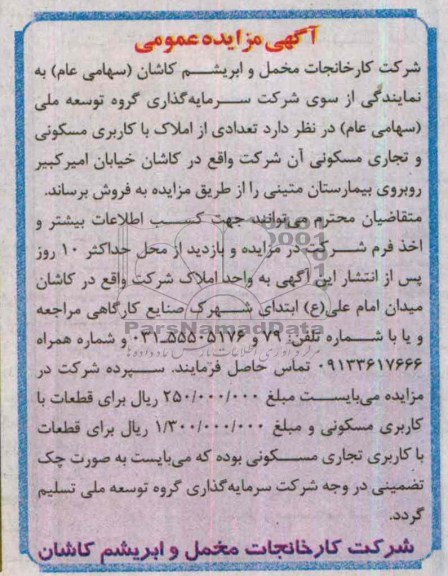 آگهی مزایده عمومی
شرکت کارخانجات مخمل و ابریشم کاشان (سهامی عام) به
نمایندگی از سوی شرکت سرمایه‌گذاری گروه توسعه ملی
(سهامی عام) در نظر دارد تعدادی از املاک با کاربری مسکونی
و تجاری مسکونی آن شرکت واقع در کاشان خیابان امیرکبیر
روبروی بیمارستان متینی را از طریق مزایده به فروش برساند.
متقاضیان محترم می‌توانند جهت کسب اطلاعات بیشتر و
اخذ فرم شرکت در مزایده و بازدید از محل حداکثر ۱۰ روز
پس از انتشار این آگهی به واحد املاک شرکت واقع در کاشان
میدان امام علی(ع) ابتدای شهرک صنایع کارگاهی مراجعه
ParsNamadData
و یا با شماره تلفن: ۷۹ و ۵۵۵۰۵۱۷۶-۰۳۱ و شماره همراه
۰۹۱۳۳۶۱۷۶۶۶ تماس حاصل فرمایند. سپرده شرکت در
مزایده می‌بایست مبلغ ۲۵۰/۰۰۰/۰۰۰ ریال برای قطعات با
کاربری مسکونی و مبلغ ۱/۳۰۰/۰۰۰/۰۰۰ ریال برای قطعات
با کاربری تجاری مسکونی بوده که می‌بایست به صورت چک
تضمینی در وجه شرکت سرمایه‌گذاری گروه توسعه ملی تسلیم
گردد.
شرکت کارخانجات مخمل و ابریشم کاشان